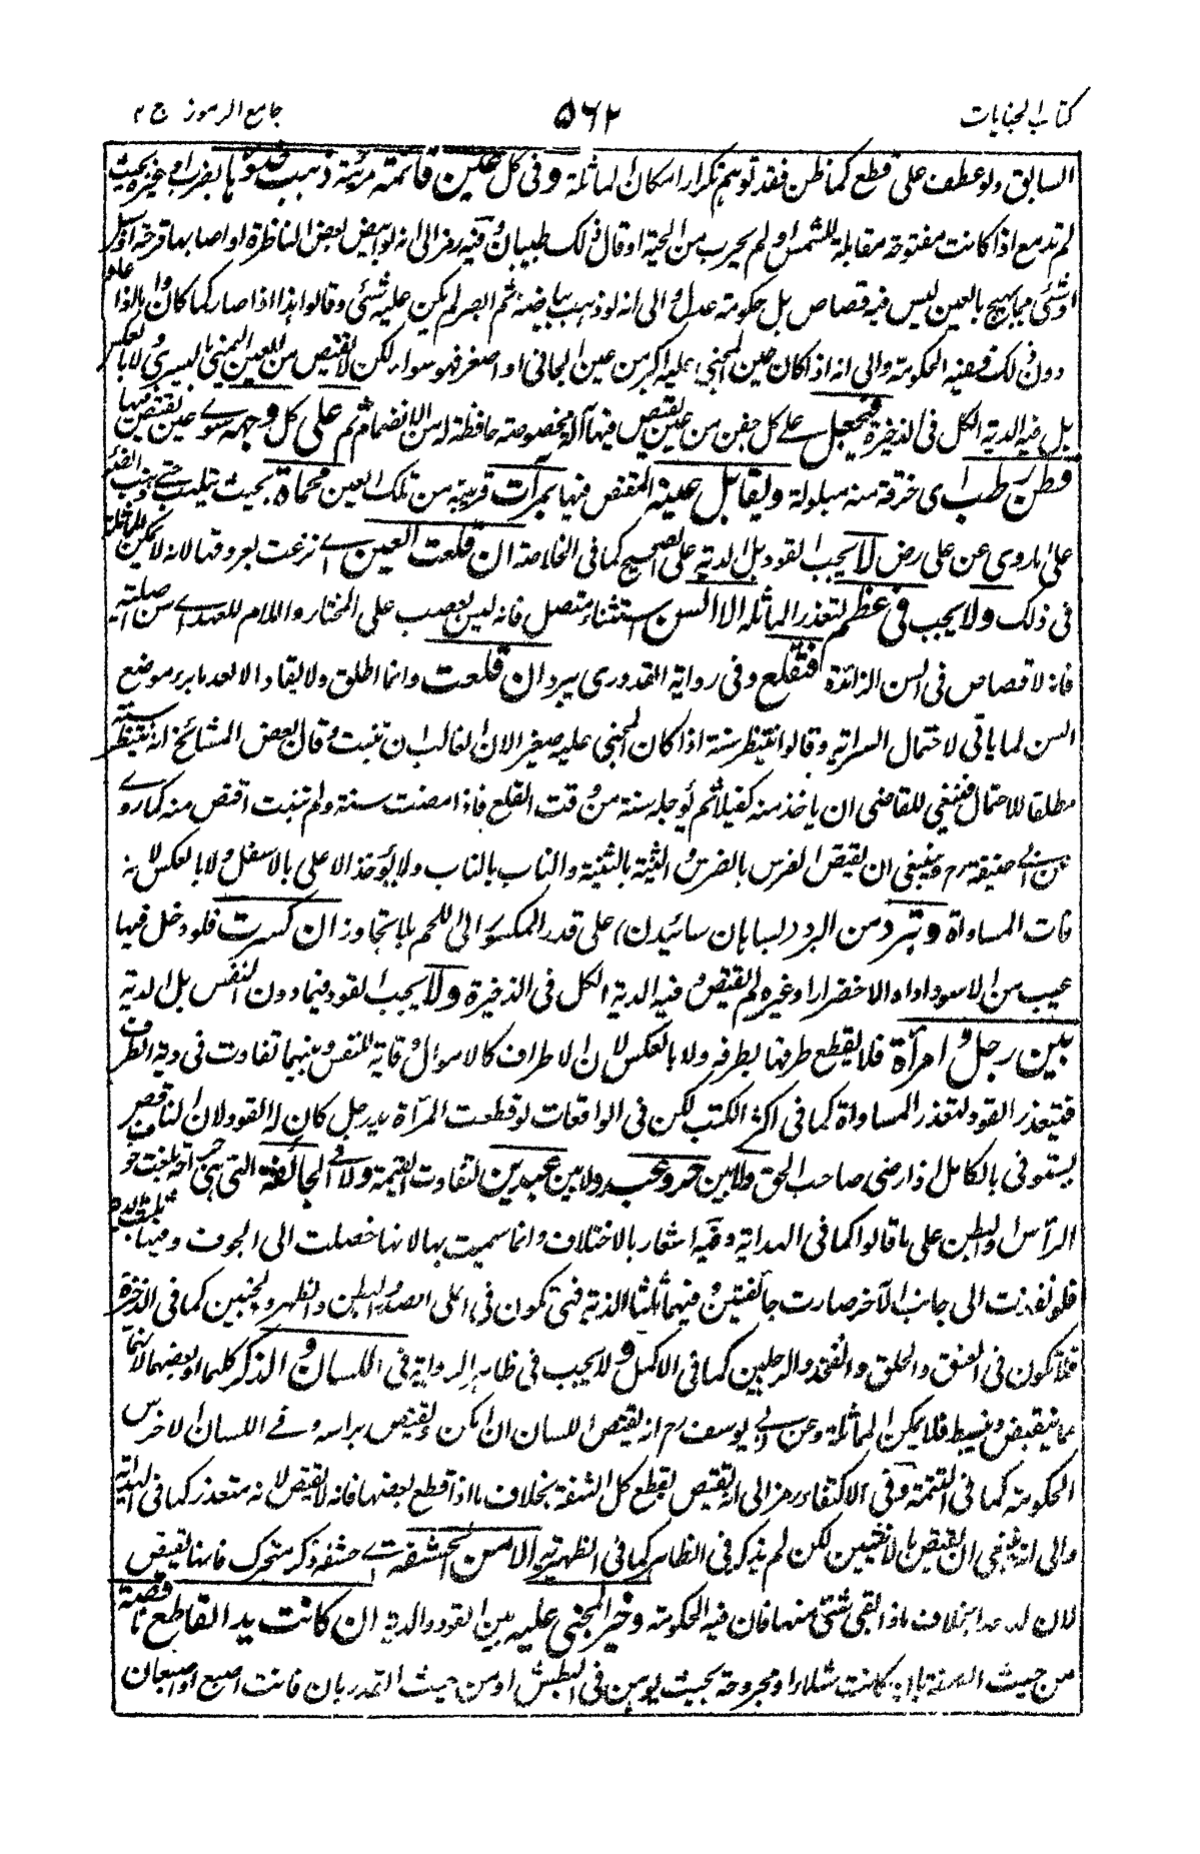 كتاب الجنايات ٥٦٢ جامع الرموز ج ٢
السابق ولو عطف على قطع كما ظن فقد توهم تكرار امكان المماثلة وفى كل عين قائمة مرئية ذهب ضوءها بضرب او غيره بحيث
لم تدمع اذا كانت مفتوحة مقابلة للشمس او لم يهرب من الحية او قال ذلك طبيبان وفيه رمز الى انه لو ابيض بعض الناظرة او اصابها قرحة او سبل
او شئ مما يهيج بالعين ليس فيه قصاص بل حكومة عدل والى انه لو ذهب بياضه ثم ابصر لم يكن عليه شئ وقالوا هذا اذا صار كما كان واما اذا عاد
دون ذلك ففيه الحكومة والى انه اذا كان عين المجنى عليه اكبر من عين الجانى او اصغر فهو سواء لكن لا يقتص من العين اليمنى باليسرى ولا بالعكس
بل فيه الدية الكل فى الذخيرة فيجعل على كل جفن من عين يقتص فيها آلة مخصوصة حافظة له من الانضمام ثم على كل وجهه سوى عين يقتص فيها
قطن رطب اى خرقة منه مبلولة ويقابل عينه المقتص فيها بمرآت قريبة من تلك العين محماة بحيث تلهب حتى يذهب الضوء
على ما روى عن على رض لا يجب القود بل الدية على الصحيح كما فى الخلاصة ان قلعت العين اى نزعت بعروقها لانه لا يمكن المماثلة
فى ذلك ولا يجب فى عظم لتعذر المماثلة الا السن استثناء متصل فانه ليس بعصب على المختار واللام للعهد اى سن اصلية
فانه لا قصاص فى السن الزائدة فتقلع وفى رواية القدورى يبرد ان قلعت وانما اطلق ولا يقاد الا بعد ما برء موضع
السن لما ياتى لاحتمال السراية وقالوا ينتظر سنة اذا كان المجنى عليه صغيرا لان الغالب ان تنبت وقال بعض المشائخ انه ينتظر سنة
مطلقا للاحتمال فينبغى للقاضى ان ياخذ منه كفيلا ثم يؤجله سنة من وقت القلع فاذا مضت سنة ولم تنبت اقتص منه كما روى
عن ابى حنيفة رح وينبغى ان يقتص الضرس بالضرس والثنية بالثنية والناب بالناب ولا يؤخذ الاعلى بالاسفل ولا بالعكس لانه
فات المساواة وتبرد من البرد (بسابان سائيدن) على قدر المكسور الى اللحم بلا تجاوز ان كسرت فلو دخل فيها
عيب من الاسوداد او الاخضرار او غيره لم يقتص وفيه الدية الكل فى الذخيرة ولا يجب القود فيما دون النفس بل الدية
بين رجل وامرأة فلا يقطع طرفها بطرفه ولا بالعكس لان الاطراف كالاموال وقاية للنفس وبينهما تفاوت فى دية الطرف
فيتعذر القود لتعذر المساواة كما فى اكثر الكتب لكن فى الواقعات لو قطعت المرأة يد رجل كان له القود لان الناقص
يستوفى بالكامل اذا رضى صاحب الحق ولا بين حر وعبد ولا بين عبدين لتفاوت القيمة ولا فى الجائفة التى هى جراحة بلغت جوف
الرأس او البطن على ما قالوا كما فى الهداية وفيه اشعار بالاختلاف وانما سميت بها لانها خصلت الى الجوف وفيها ثلث الدية
فلو نفذت الى جانب الآخر صارت جائفتين وفيهما ثلثا الدية فهى تكون فى اعلى الصدر والبطن والظهر والجنبين كما فى الذخيرة
فلا تكون فى العنق والحلق والفخذ والرجلين كما فى الاكمل ولا يجب فى ظاهر الرواية فى اللسان والذكر كلهما او بعضهما لانهما
مما ينقبض وينبسط فلا يمكن المماثلة وعن ابى يوسف رح انه يقتص اللسان ان امكن ويقتص براسه وفى اللسان الاخرس
الحكومة كما فى التتمة وفى الاكتفاء رمز الى انه يقتص بقطع كل الشفة بخلاف ما اذا قطع بعضها فانه لا يقتص لانه متعذر كما فى الهداية
والى انه ينبغى ان يقتص بالانثيين لكن لم يذكر فى الظاهر كما فى الظهيرية الا من الحشفة اى حشفة ذكر متحرك فانها تقتص
لان له حدا بخلاف ما اذا بقى شئ منها فان فيه الحكومة وخير المجنى عليه بين القود والدية ان كانت يد القاطع ناقصة
من حيث الصفة بان كانت شلاء او مجروحة بحيث يوهن فى البطش او من حيث القدر بان فاتت اصبع او اصبعان